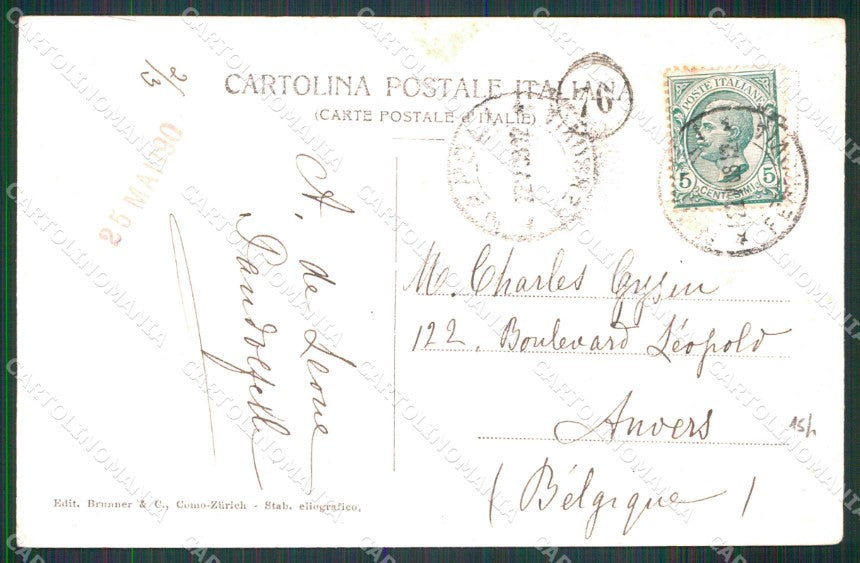 CARTOLINA POSTALE ITALIANA
(CARTE POSTALE d'ITALIE)
76
POSTE ITALIANE
5 CENTESIMI 5
2/13
A. de Leone
M. Charles Gysin
122. Boulevard Léopold
Anvers
(Bélgique)
15/-
Edit. Brunner & C., Como-Zürich - Stab. eliografico.
CARTOLINOMANIA